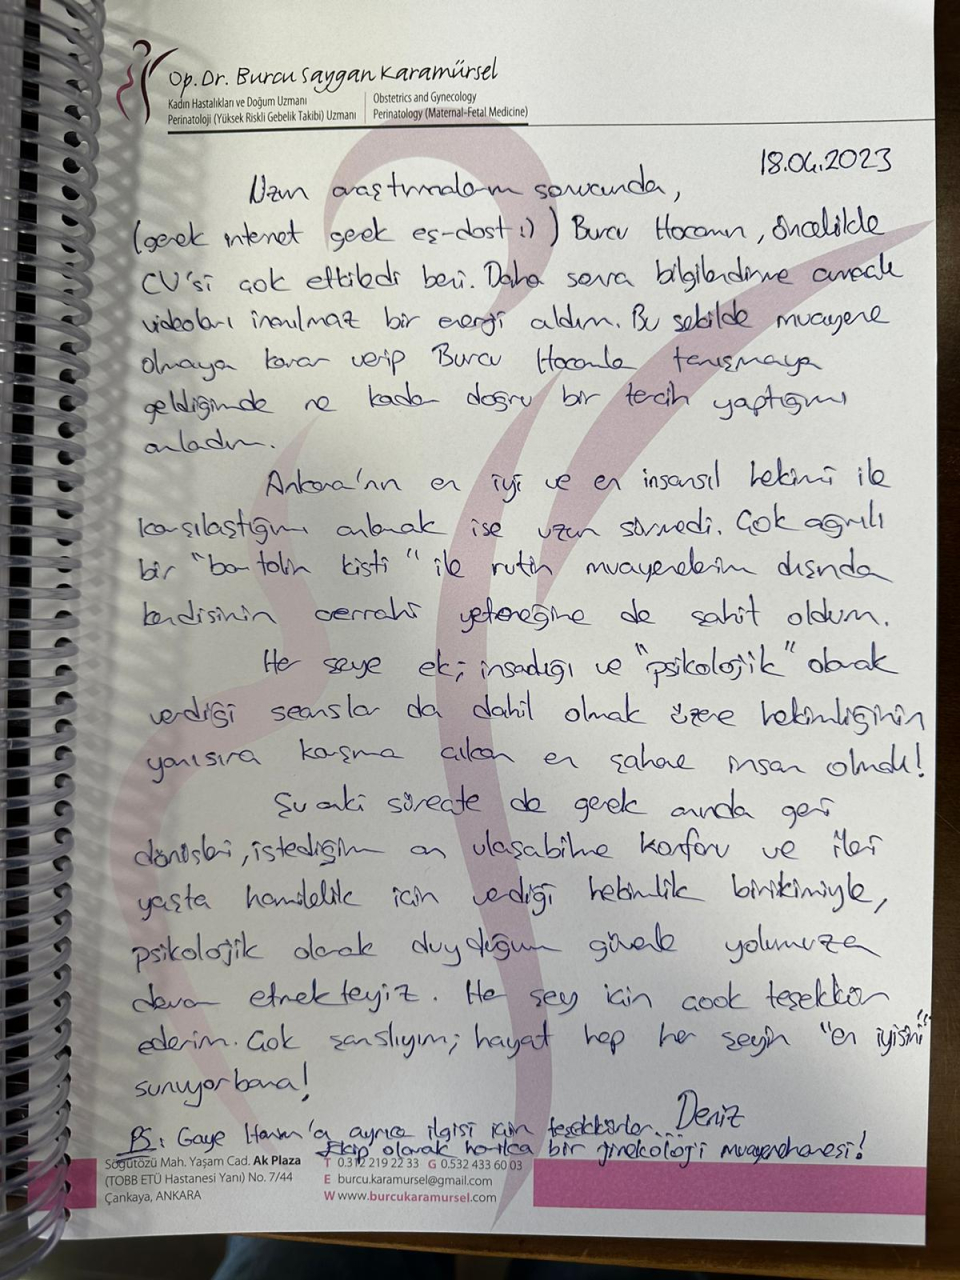 Op. Dr. Burcu Saygan Karamürsel
Kadın Hastalıkları ve Doğum Uzmanı
Perinatoloji (Yüksek Riskli Gebelik Takibi) Uzmanı
Obstetrics and Gynecology
Perinatology (Maternal-Fetal Medicine)
18.04.2023
Uzun araştırmalarım sonucunda,
(gerek internet gerek eş-dost :) ) Burcu Hocamın, öncelikle
CV'si çok etkiledi beni. Daha sonra bilgilendirme amaçlı
videoları inanılmaz bir enerji aldım. Bu şekilde muayene
olmaya karar verip Burcu Hocamla tanışmaya
geldiğimde ne kadar doğru bir tercih yaptığımı
anladım.
Ankara'nın en iyi ve en insansıl hekimi ile
karşılaştığımı anlamak ise uzun sürmedi. Çok ağrılı
bir "bartolin kisti" ile rutin muayenelerim dışında
kendisinin cerrahi yeteneğine de şahit oldum.
Her şeye ek; insanlığı ve "psikolojik" olarak
verdiği seanslar da dahil olmak üzere hekimliğinin
yanısıra karşıma çıkan en şahane insan olmalı!
Şu anki süreçte de gerek anında geri
dönüşleri, istediğim an ulaşabilme konforu ve ileri
yaşta hamilelik için verdiği hekimlik birikimiyle,
psikolojik olarak duyduğum güvenle yolumuza
devam etmekteyiz. Her şey için çook teşekkür
ederim. Çok şanslıyım; hayat hep her şeyin "en iyisini"
sunuyor bana!
Deniz
PS: Gaye Hanım'a ayrıca ilgisi için teşekkürler...
Ekip olarak harika bir jinekoloji muayenehanesi!
Söğütözü Mah. Yaşam Cad. Ak Plaza
(TOBB ETÜ Hastanesi Yanı) No. 7/44
Çankaya, ANKARA
T 0.312 219 22 33 G 0.532 433 60 03
E burcu.karamursel@gmail.com
W www.burcukaramursel.com